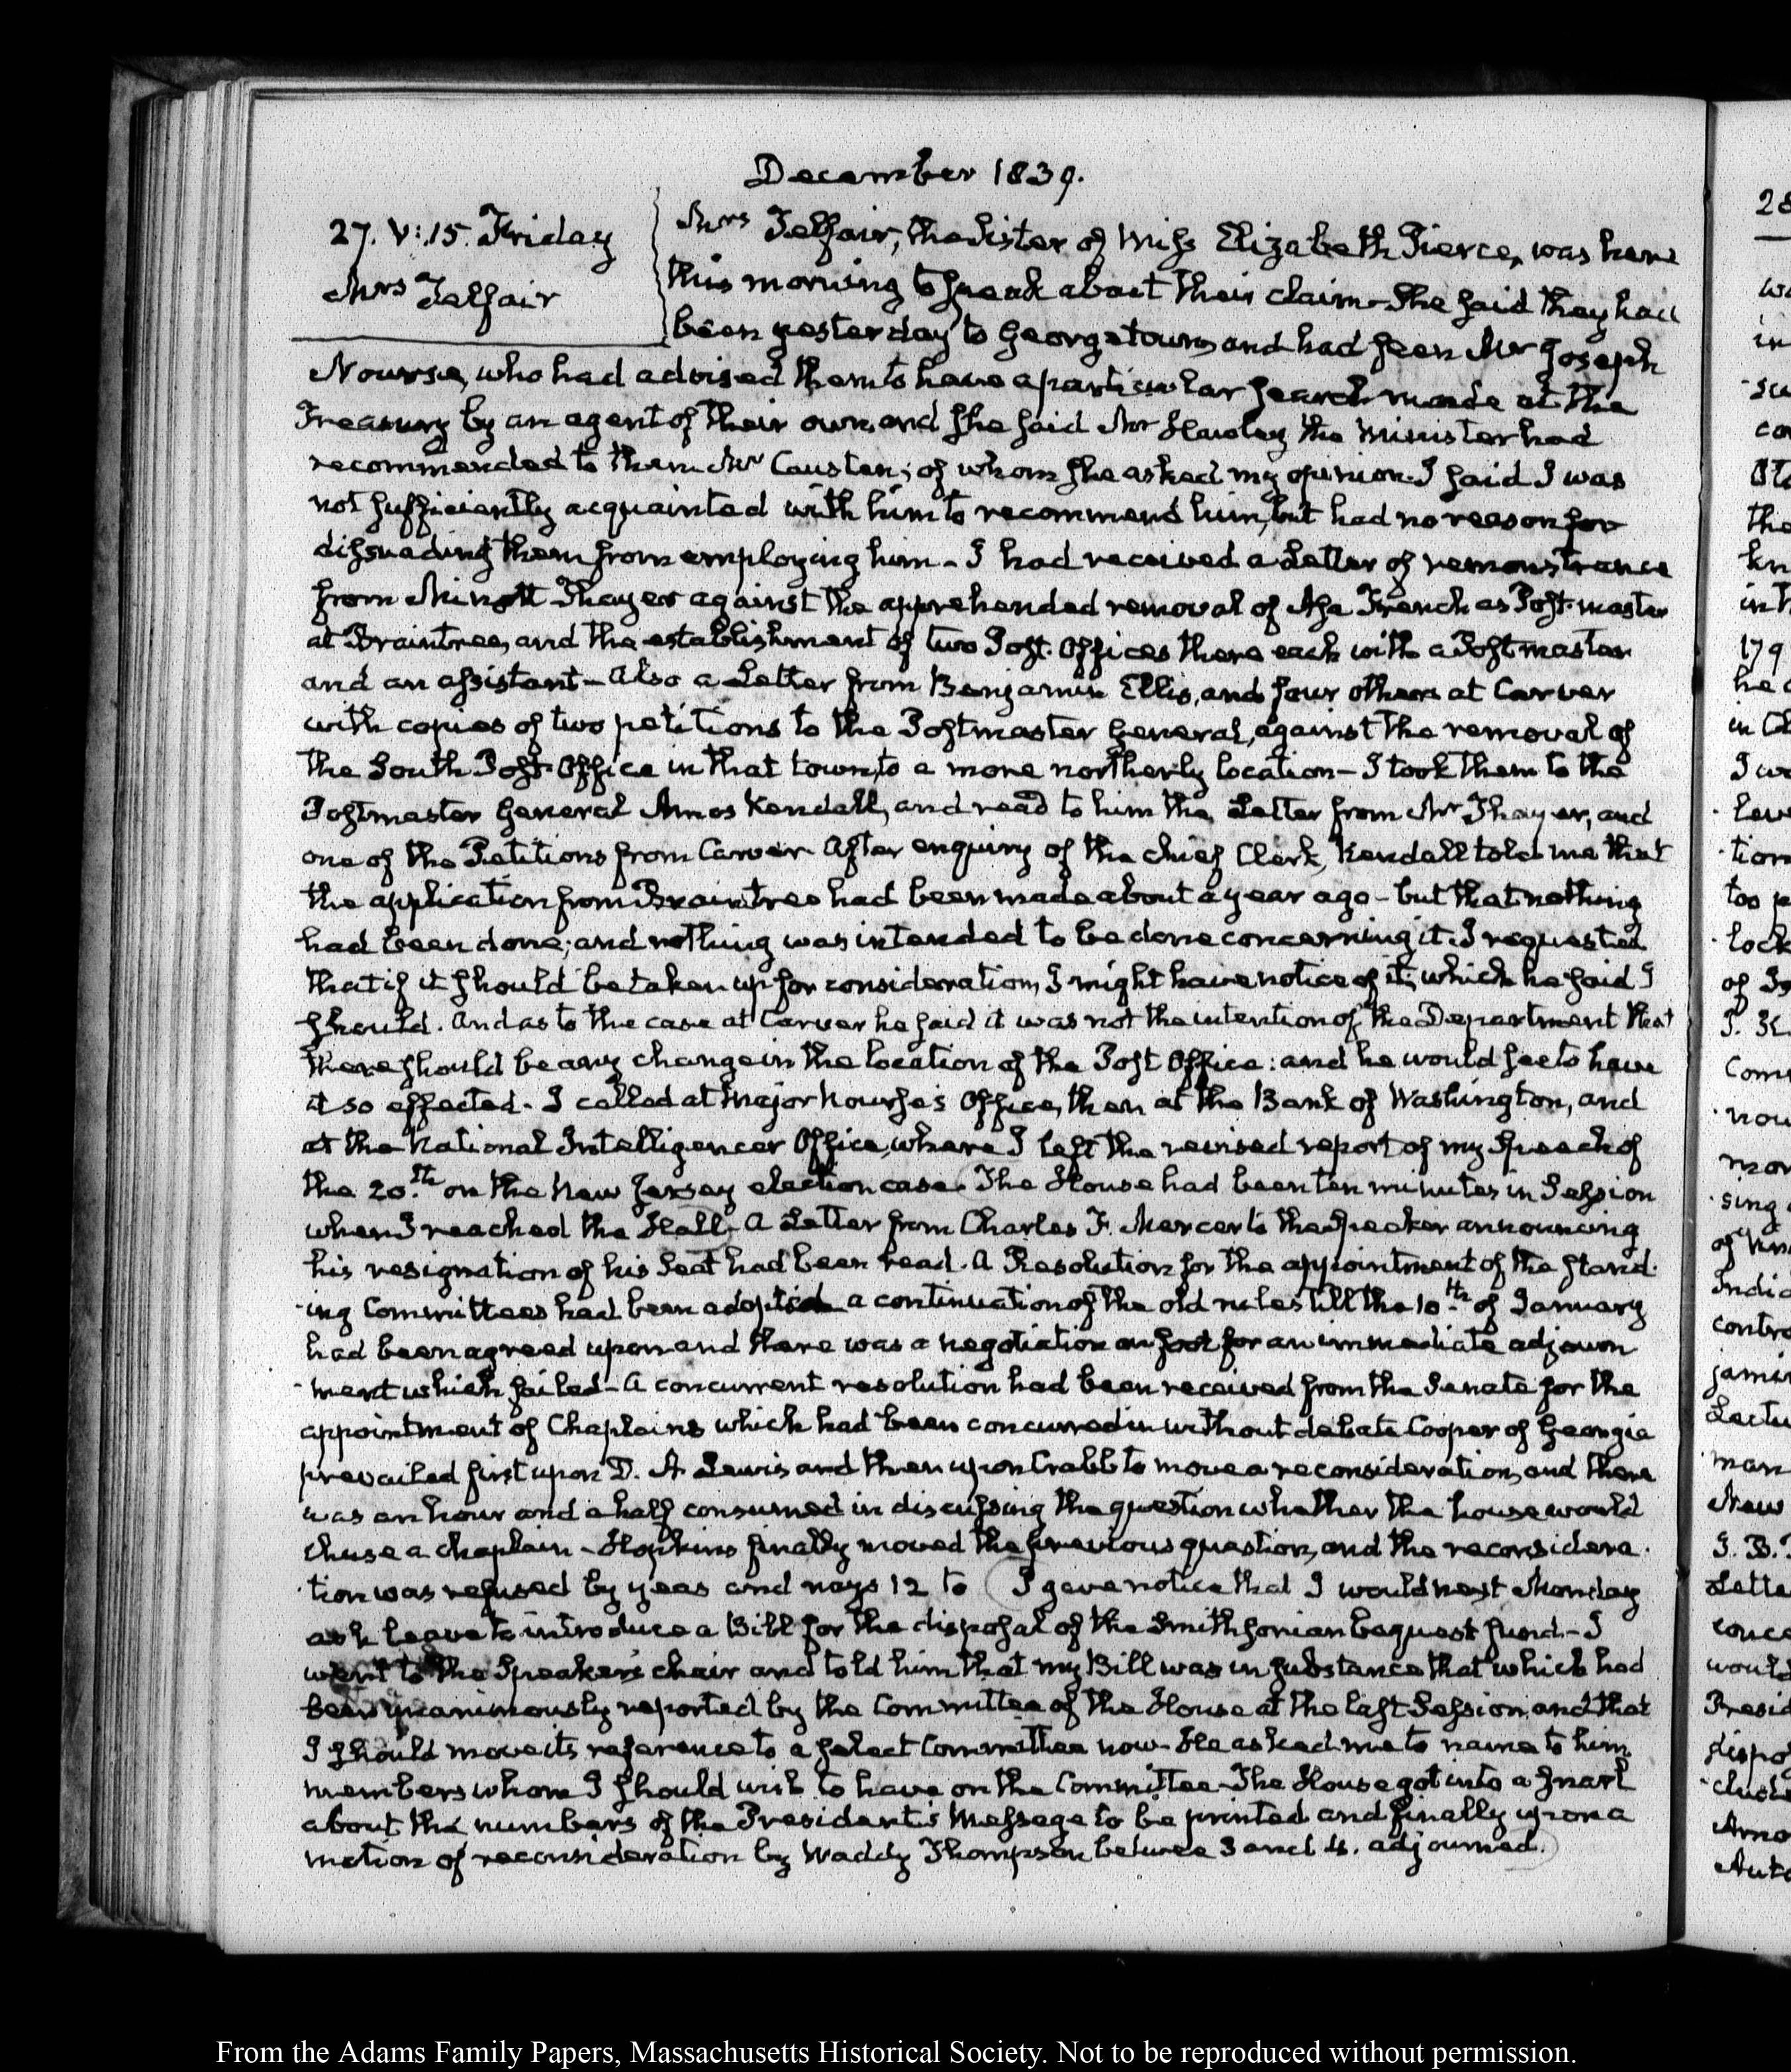 December 1839.
27. V:15. Friday
Mrs Telfair
Mrs Telfair, the Sister of Miss Elizabeth Pierce, was here
this morning to speak about their claim - She said they had
been yesterday to Georgetown, and had seen Mr Joseph
Nourse, who had advised them to have a particular search made at the
Treasury by an agent of their own, and she said Mr Hawley the Minister had
recommended to them Mr Causten; of whom she asked my opinion. I said I was
not sufficiently acquainted with him to recommend him, but had no reason for
dissuading them from employing him - I had received a Letter of remonstrance
from Minott Thayer against the apprehended removal of Asa French as Post-master
at Braintree, and the establishment of two Post-Offices there each with a Postmaster
and an assistant - Also a Letter from Benjamin Ellis, and four others at Carver
with copies of two petitions to the Postmaster General, against the removal of
the South Post-Office in that town, to a more northerly location - I took them to the
Postmaster General Amos Kendall, and read to him the Letter from Mr Thayer, and
one of the Petitions from Carver. After enquiry of the chief Clerk, Kendall told me that
the application from Braintree had been made about a year ago - but that nothing
had been done; and nothing was intended to be done concerning it. I requested
that if it should be taken up for consideration, I might have notice of it, which he said I
should. And as to the case at Carver he said it was not the intention of the Department that
there should be any change in the location of the Post Office: and he would see to have
it so effected - I called at Major Nourse's Office, then at the Bank of Washington, and
at the National Intelligencer Office, where I left the revised report of my Speech of
the 20.th on the New Jersey election case. The House had been ten minutes in Session
when I reached the Hall - A Letter from Charles F. Mercer to the Speaker announcing
his resignation of his Seat had been read. A Resolution for the appointment of the stand-
ing Committees had been adopted a continuation of the old rules till the 10.th of January
had been agreed upon and there was a negotiation on foot for an immediate adjourn
-ment which failed - A concurrent resolution had been received from the Senate for the
appointment of Chaplains which had been concurred in without debate Cooper of Georgia
prevailed first upon D. H Lewis and then upon Crabb to move a reconsideration, and there
was an hour and a half consumed in discussing the question whether the house would
chuse a chaplain - Hopkins finally moved the previous question, and the reconsidera-
tion was refused by yeas and nays 12 to ( I gave notice that I would next Monday
ask leave to introduce a Bill for the disposal of the Smithsonian bequest fund - I
went to the Speaker's chair and told him that my Bill was in substance that which had
been unanimously reported by the Committee of the House at the last Session, and that
I should move its reference to a select Committee now - He asked me to name to him
members whom I should wish to have on the Committee - The House got into a snarl
about the numbers of the President's Message to be printed and finally upon a
motion of reconsideration by Waddy Thompson betwee 3 and 4. adjourned.)
From the Adams Family Papers, Massachusetts Historical Society. Not to be reproduced without permission.